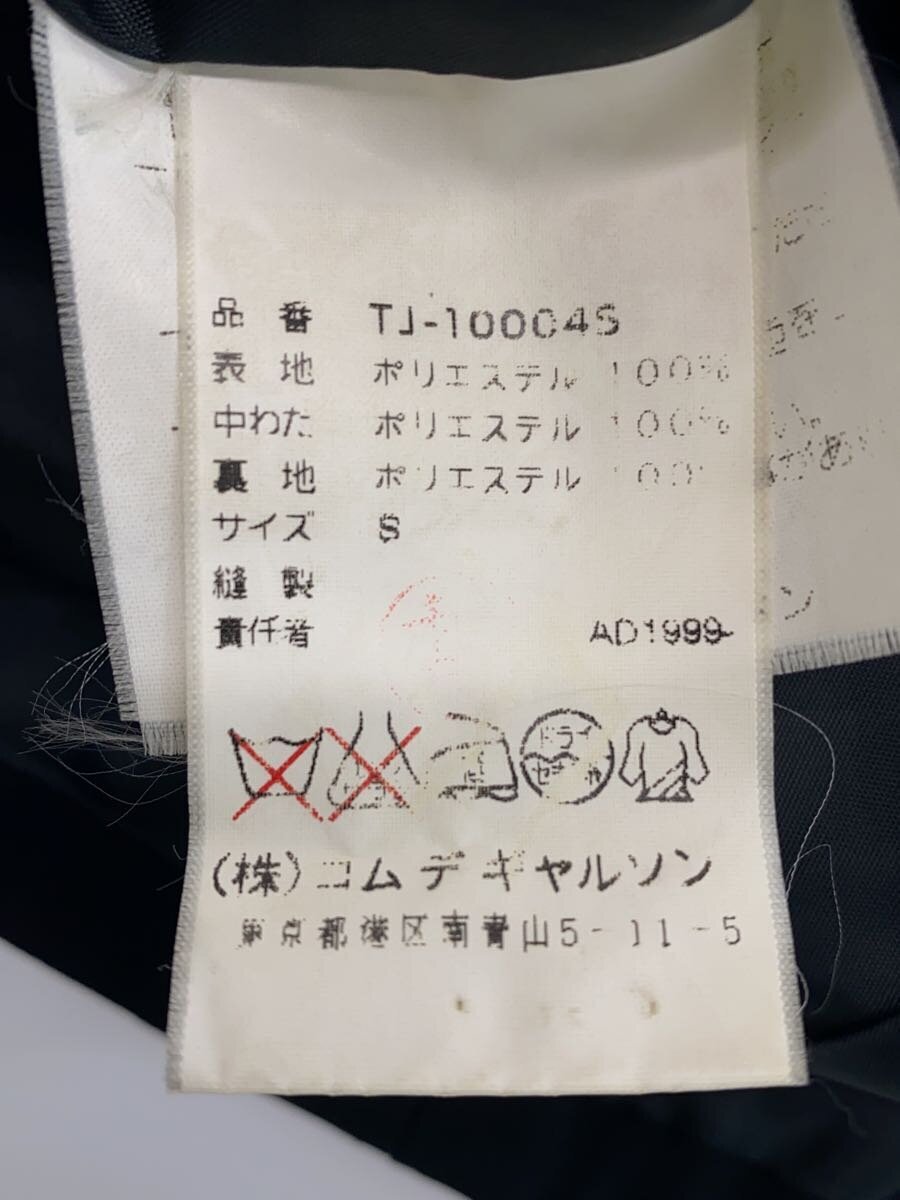 品番 TJ-10004S
表地 ポリエステル 100%
中わた ポリエステル 100%
裏地 ポリエステル 100%
サイズ S
縫製
責任者 AD1999
ドライ
セキユ系
(株)コムデギャルソン
東京都港区南青山5-11-5